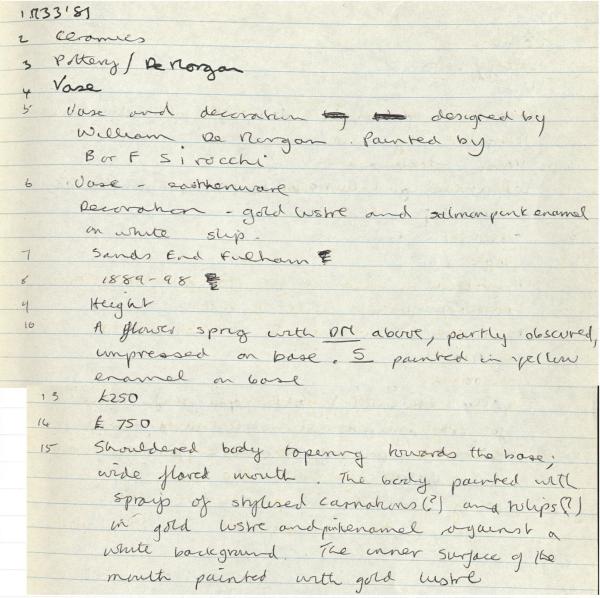 1 R33'81
2 Ceramics
3 Pottery / De Morgan
4 Vase
5 Vase and decoration designed by
William De Morgan. Painted by
B or F Sirocchi
6 Vase - earthenware
Decoration - gold lustre and salmon pink enamel
on white slip.
7 Sands End Fulham
8 1889-98
9 Height
10 A flower sprig with DM above, partly obscured,
impressed on base. S painted in yellow
enamel on base
13 £250
14 £750
15 Shouldered body tapering towards the base;
wide flared mouth. The body painted with
sprays of stylised carnations(?) and tulips(?)
in gold lustre and pink enamel against a
white background. The inner surface of the
mouth painted with gold lustre